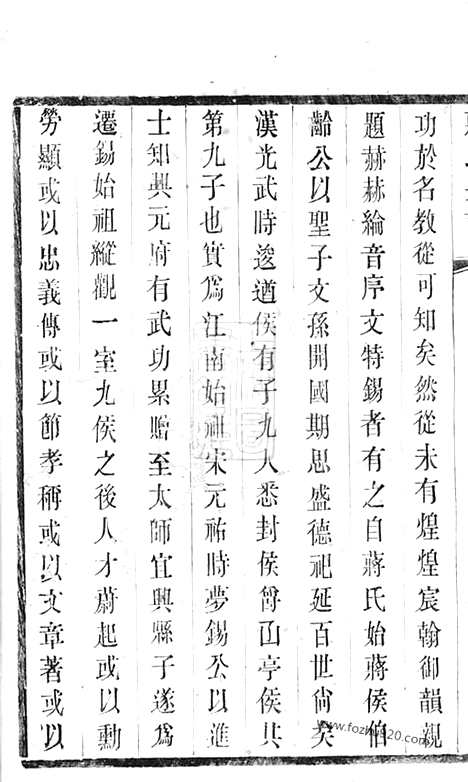 功於名教從可知矣然從未有煌煌宸翰御韻親
題赫赫綸音序文特錫者有之自蔣氏始蔣侯伯
齡公以聖子文孫開國期思盛德祀延百世尙矣
漢光武時逡遒侯有子九人悉封侯𠖥山亭侯其
第九子也實爲江南始祖宋元祐時夢錫公以進
士知興元府有武功累贈至太師宜興縣子遂爲
遷錫始祖縱觀一室九侯之後人才蔚起或以勳
勞顯或以忠義傳或以節孝稱或以文章著或以
www.fozhu920.com